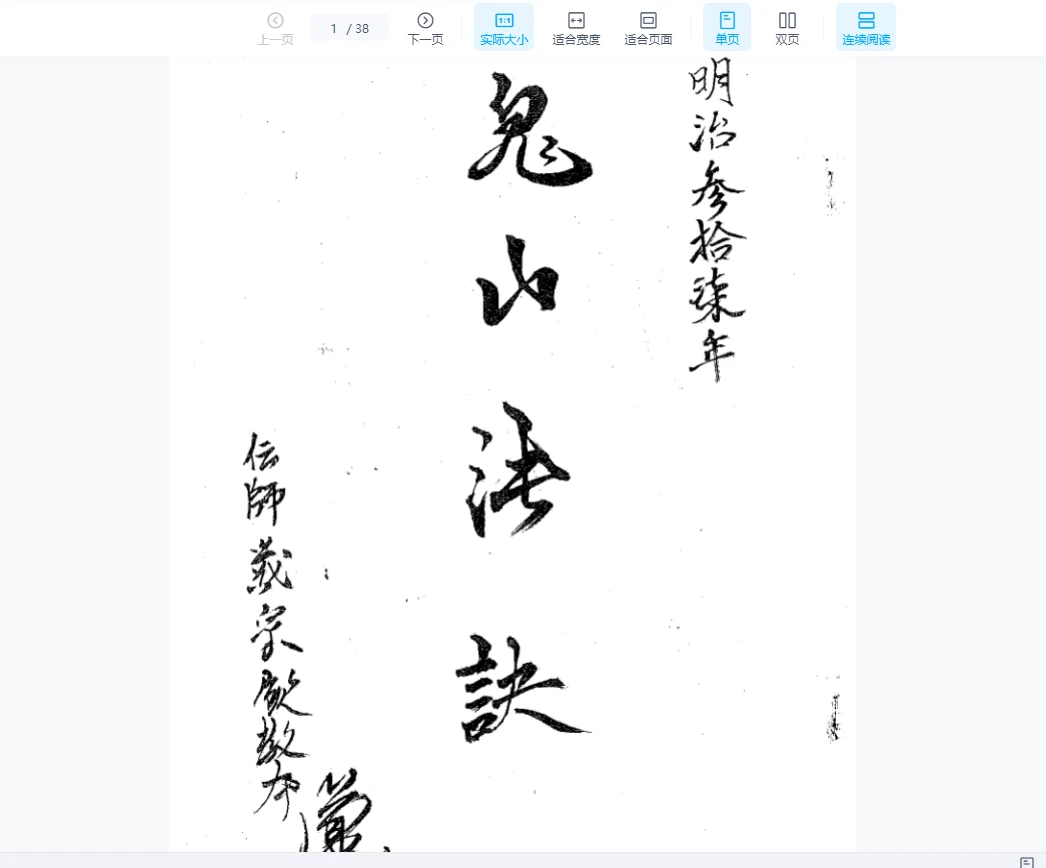 上一页
1 / 38
下一页
1:1
实际大小
适合宽度
适合页面
单页
双页
连续阅读
明治参拾柒年
鬼山法訣
伝師戴宗
教